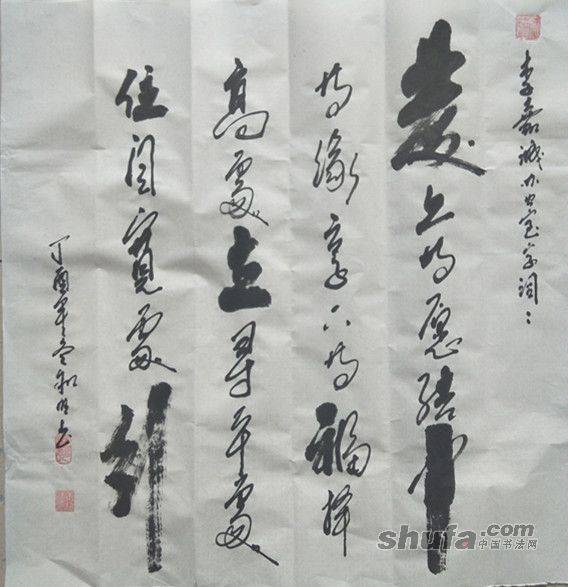 李嘉诚办公室字词:
发上等愿结中
等缘享下等福择
高處立寻平處
住向宽處行
丁酉年冬
shufa.com
中国书法网